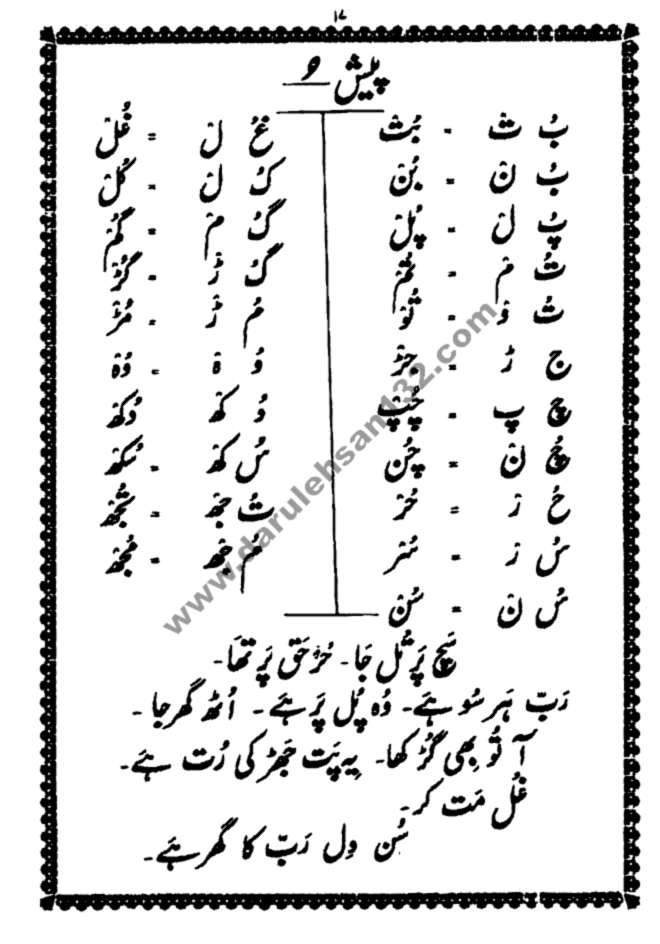 پیش ـُ
بُ تْ = بُتْ
بُ نْ = بُنْ
پُ لْ = پُلْ
تُ مْ = تُمْ
تُ وْ = تُوْ
جُ ڑْ = جُڑْ
چُ پْ = چُپْ
چُ نْ = چُنْ
حُ رْ = حُرْ
سُ رْ = سُرْ
سُ نْ = سُنْ
غُ لْ = غُلْ
کُ لْ = کُلْ
گُ مْ = گُمْ
گُ ڑْ = گُڑْ
مُ ڑْ = مُڑْ
وُ ہْ = وُہْ
دُ کھْ = دُکھْ
سُ کھْ = سُکھْ
تُ جھْ = تُجھْ
مُ جھْ = مُجھْ
سَچ پَر تُل جَا۔ حُر حَق پَر تھَا۔
رَبّ ہَر سُو ہَے۔ وُہ پُل پَر ہَے۔ اُٹھ گھر جا۔
آ تُو بھی گُڑ کھا۔ یِہ پَت جھَڑ کی رُت ہَے۔
غُل مَت کر۔
سُن دِل رَبّ کا گھَر ہَے۔
www.darulehsan132.com